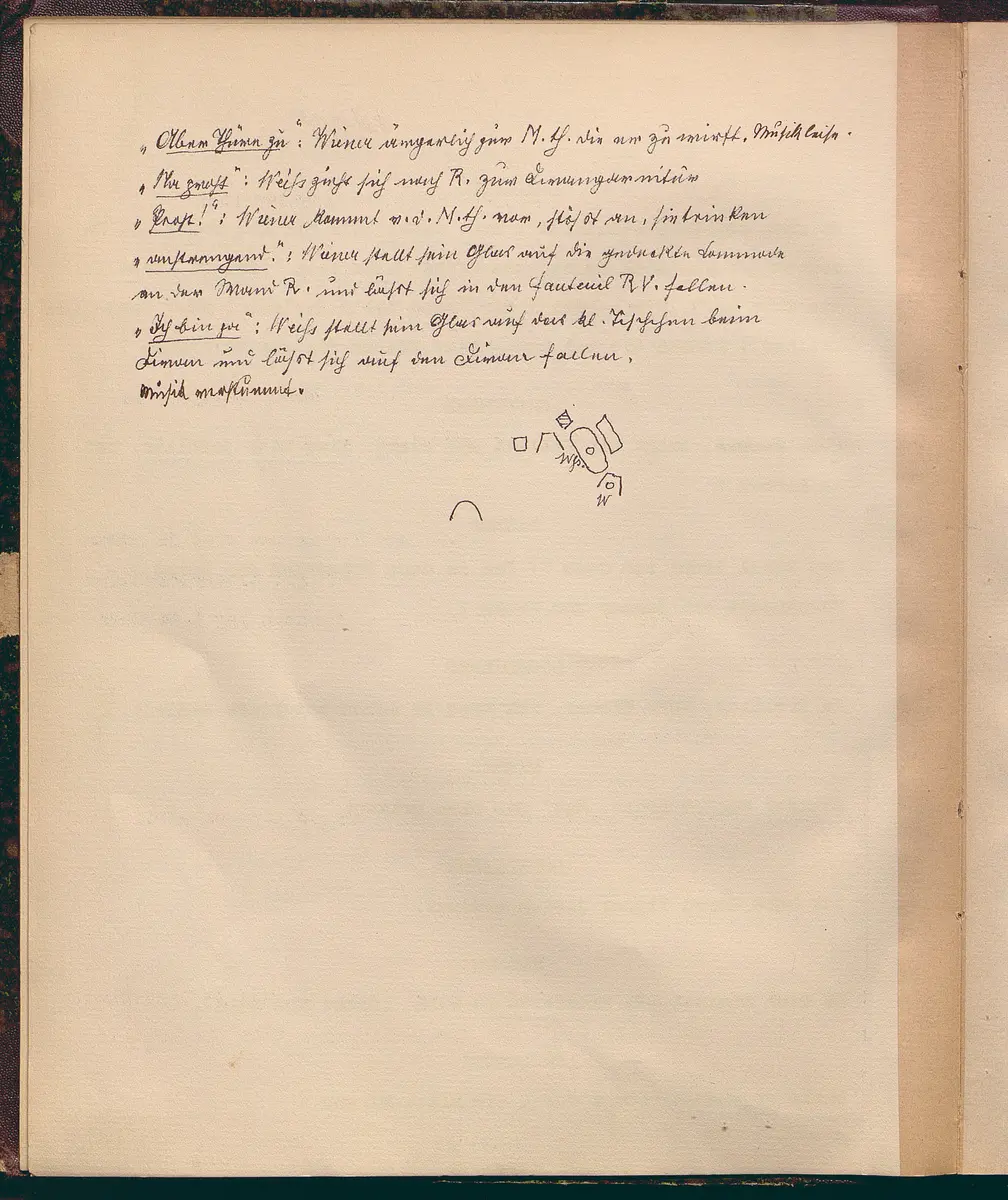 „Aber Thüre zu“: Wiener ärgerlich zur M. th. die er zu wirft. Musik leise.
„Na prost“: Weihs zieht sich nach R. zur Divangarnitur
„Prost!“: Wiener kommt v. d. M. th. vor, stösst an, sie trinken
„anstrengend.“: Wiener stellt sein Glas auf die gedeckte Commode
an der Wand R. und lässt sich in den Fauteuil R V. fallen.
„Ich bin ja“: Weihs stellt sein Glas auf das kl. Tischchen beim
Divan und lässt sich auf den Divan fallen.
Musik verstummt.
Ws.
W